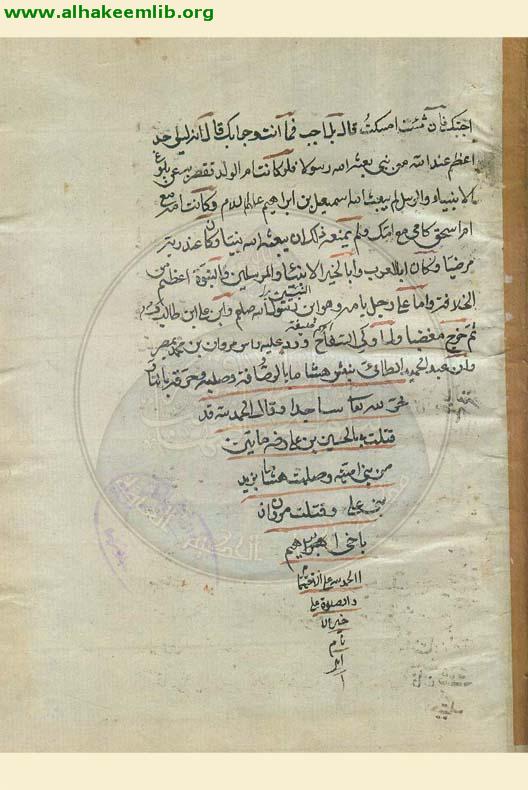 www.alhakeemlib.org
اجبتك فان شئت امسكت قال بل اجب فما انت وجوابك قال انه ليس احد
اعظم عند الله من نبي بعثه الله رسولا فلو كانت ام الولد تقصر به عن بلوغ
الانبياء والرسل لم يبعث الله اسمعيل بن ابراهيم عليهما السلام وكانت امه مع
ام اسحق كامي مع امك ولم يمنعه ذلك ان يبعثه الله نبيا وكان عند ربه
مرضيا وكان ابا العرب وابا الخير الانبياء والمرسلين والنبوة اعظم من
الخلافة واما على رجل بامه وهو ابن رسول الله صلعم وابن علي ابن طالب
النبيين
ثم خرج مغضبا ولما ولي السفاح وورد عليه راس مروان بن محمد بمصر
خليفة
وان عبد الحميد الطائي نبش هشاما بالرصافة وصلبه وحرقه بالنار
خر لله ساجدا وقال الحمد لله قد
قتلت بالحسين بن علي رضه مايتين
من بني امية وصلبت هشاما بزيد
بن علي وقتلت مروان
باخي ابراهيم
الحمد لله على التمام
والصلوة على
خير الا
نام